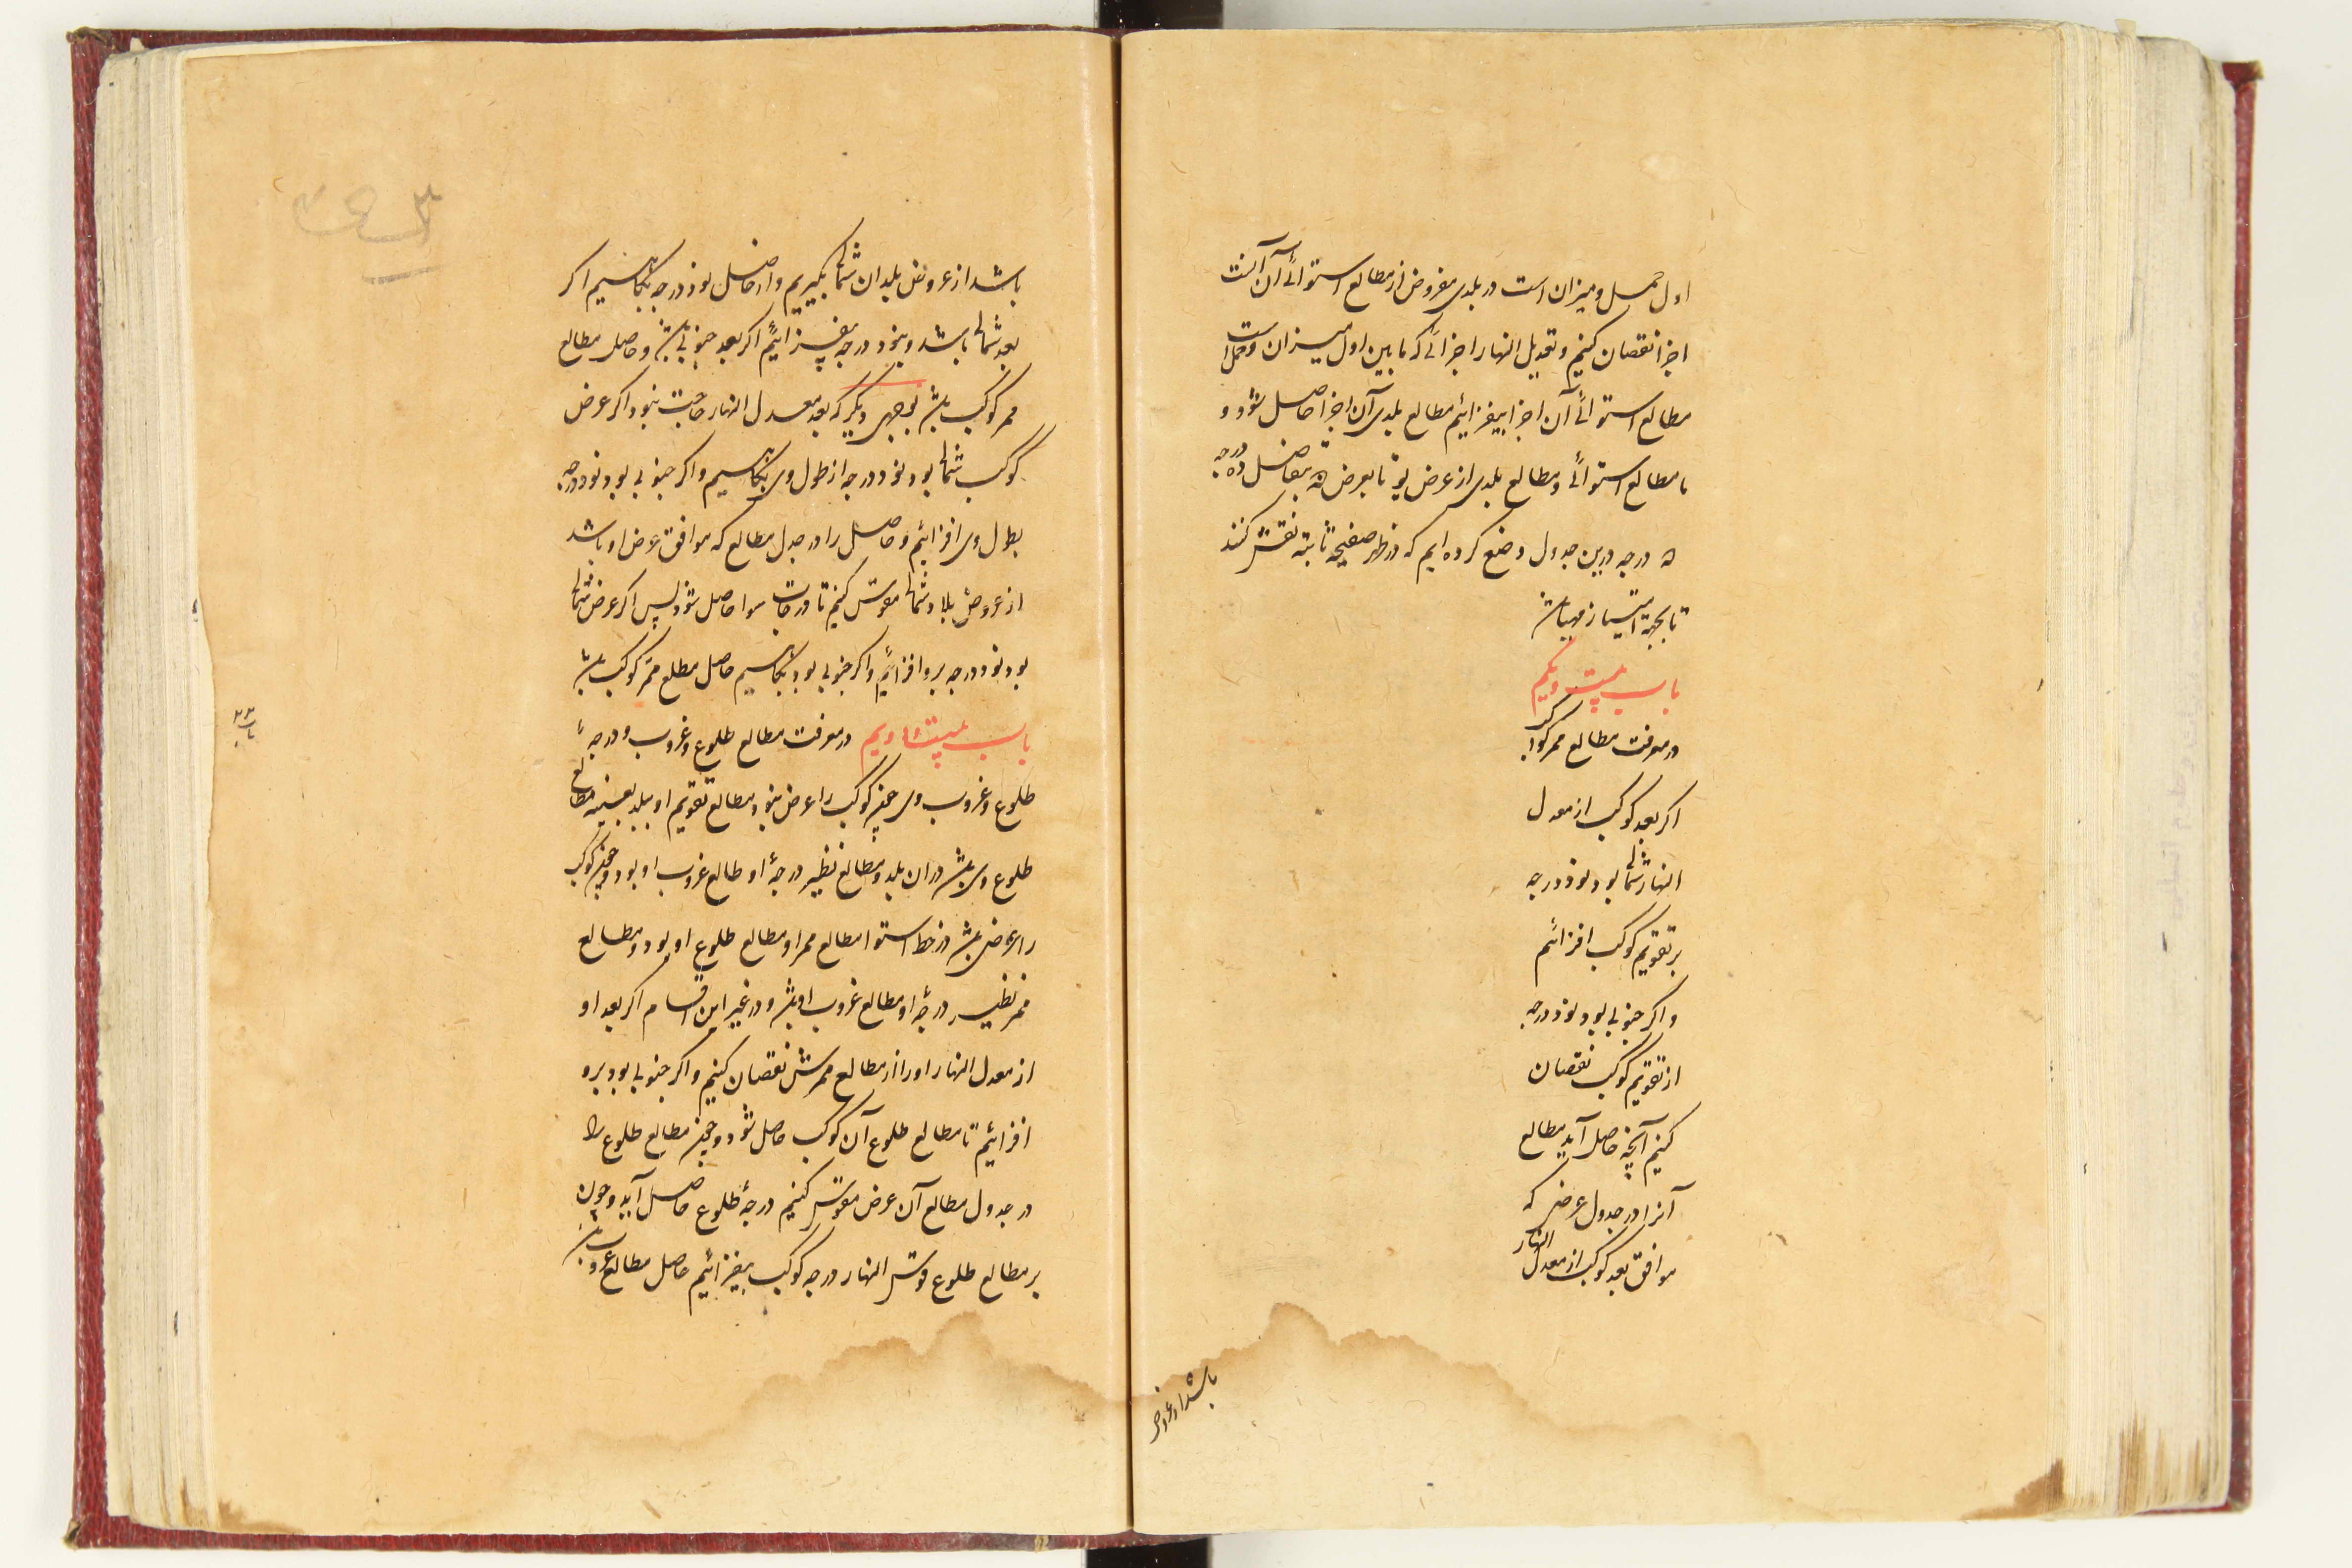 اول حمل و میزان است در بلدی مفروض از مطالع استوائی آن
اجزا نقصان کنیم و تعدیل النهار اجزائی که مابین اول میزان و حمل است
مطالع استوائی آن اجزا بیفزائیم مطالع بلدی آن اجزا حاصل شود و
ما مطالع استوائی و مطالع بلدی از عرض تا بعرض بتفاضل ده درجه
درجه درین جدول وضع کرده ایم که در ظهر صفیحه ثابته نقش کنند
تا بجهة امتیاز مهیا باشد
باب بیست و یکم
در معرفت مطالع ممر کواکب
اکر بعد کوکب از معدل
النهار شمالی بود نود درجه
بر تقویم کوکب افزائیم
و اکر جنوبی بود نود درجه
از تقویم کوکب نقصان
کنیم آنچه حاصل آید مطالع
آنرا در جدول عرض که
موافق بعد کوکب از معدل النهار
باشد از عروض
باشد از عروض بلدان شمالی بگیریم و از حاصل نود درجه بکاهیم اکر
بعد شمالی باشد و نود درجه بیفزائیم اکر بعد جنوبی باشد و حاصل مطالع
ممر کوکب باشد بوجهی دیکر که بعد معدل النهار حاجت نبود اکر عرض
کوکب شمالی بود نود درجه از طول وی بکاهیم و اکر جنوبی بود نود درجه
بطول وی افزائیم و حاصل را در جدول مطالع که موافق عرض او باشد
از عروض بلاد شمالی مقوس کنیم تا درجات سوا حاصل شود پس اکر عرض شمالی
بود نود درجه برو افزائیم و اکر جنوبی بود بکاهیم حاصل مطلع ممر کوکب باشد
باب بیست و دویم در معرفت مطالع طلوع و غروب و درجهٔ
طلوع و غروب وی چون کوکب را عرض نبود مطالع تقویم او ببلد بعینه مطالع
طلوع وی باشد در ان بلد و مطالع نظیر درجهٔ او طالع غروب او بود و چون کوکب
را عرض باشد در خط استوا مطالع ممر او مطالع طلوع او بود و مطالع
ممر نظیر درجهٔ او مطالع غروب او باشد و در غیر این اقسام اکر بعد او
از معدل النهار او را از مطالع ممرش نقصان کنیم و اکر جنوبی بود برو
افزائیم تا مطالع طلوع آن کوکب حاصل شود و چون مطالع طلوع را
در جدول مطالع آن عرض مقوس کنیم درجهٔ طلوع حاصل آید و چون
بر مطالع طلوع قوس النهار درجه کوکب بیفزائیم حاصل مطالع غروب باشد